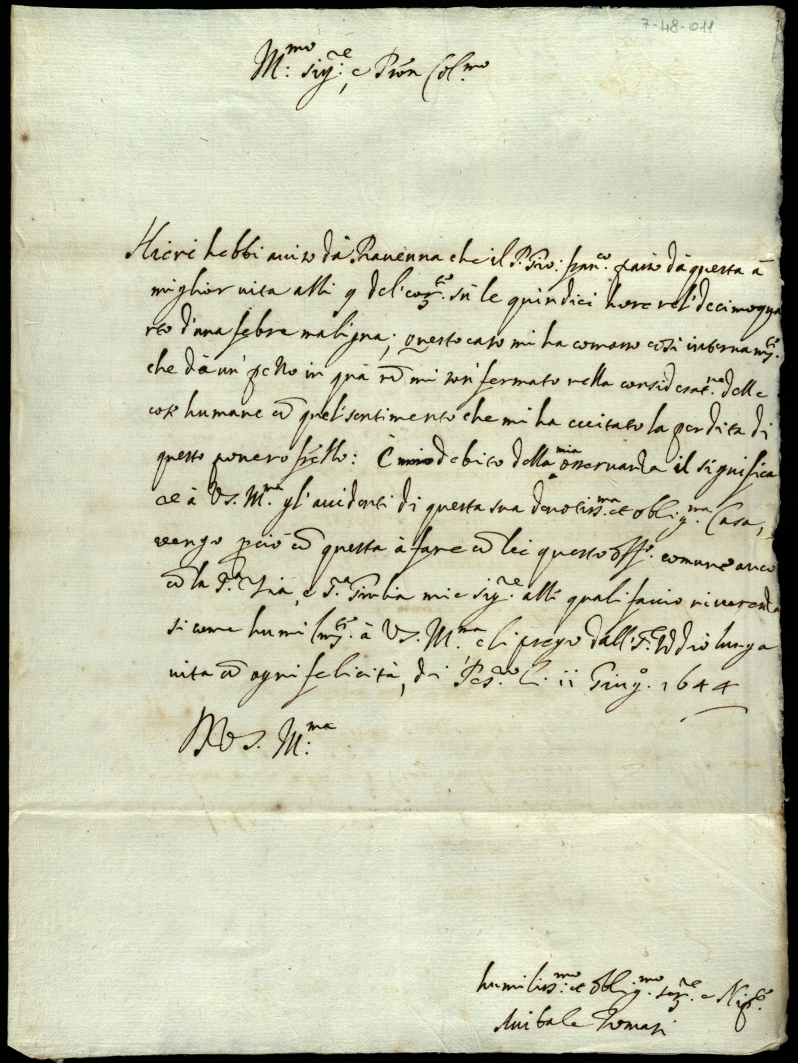 7-48-011
M:mo Sig:re, e Pron Col:mo
Hieri hebbi auiso dà Rauenna che il P. Gio: Fran:co passò dà questa à
miglior uita alli 9 del corr:te sù le quindici hore nel decimoqua
rto d'una febre maligna; Questo caso mi ha comosso così internam:te
che dà un' pezzo in quà nõ mi son' fermato nella considerat:ne delle
cose humane cõ quel' sentimento che mi ha eccitato la perdita di
questo pouero fr̃ello: È debito della mia osseruanza il significa
re à V.S. M:ma gl'accidenti di questa sua deuotiss:ma et oblig:ma Casa,
uengo perciò cõ questa à fare cõ lei questo off:o comune anco
cõ la S.a Zia, e S.a Giulia mie Sig:re alli quali faccio riuerenza
si come humilm:te à V.S. M:ma e li prego dall' S. Iddio lunga
uita cõ ogni felicità, di Pes:ro li ii Giug:o 1644
D V.S. M:ma
humiliss:mo et oblig:mo ser:re e Nip:te
Anibale Tomasi